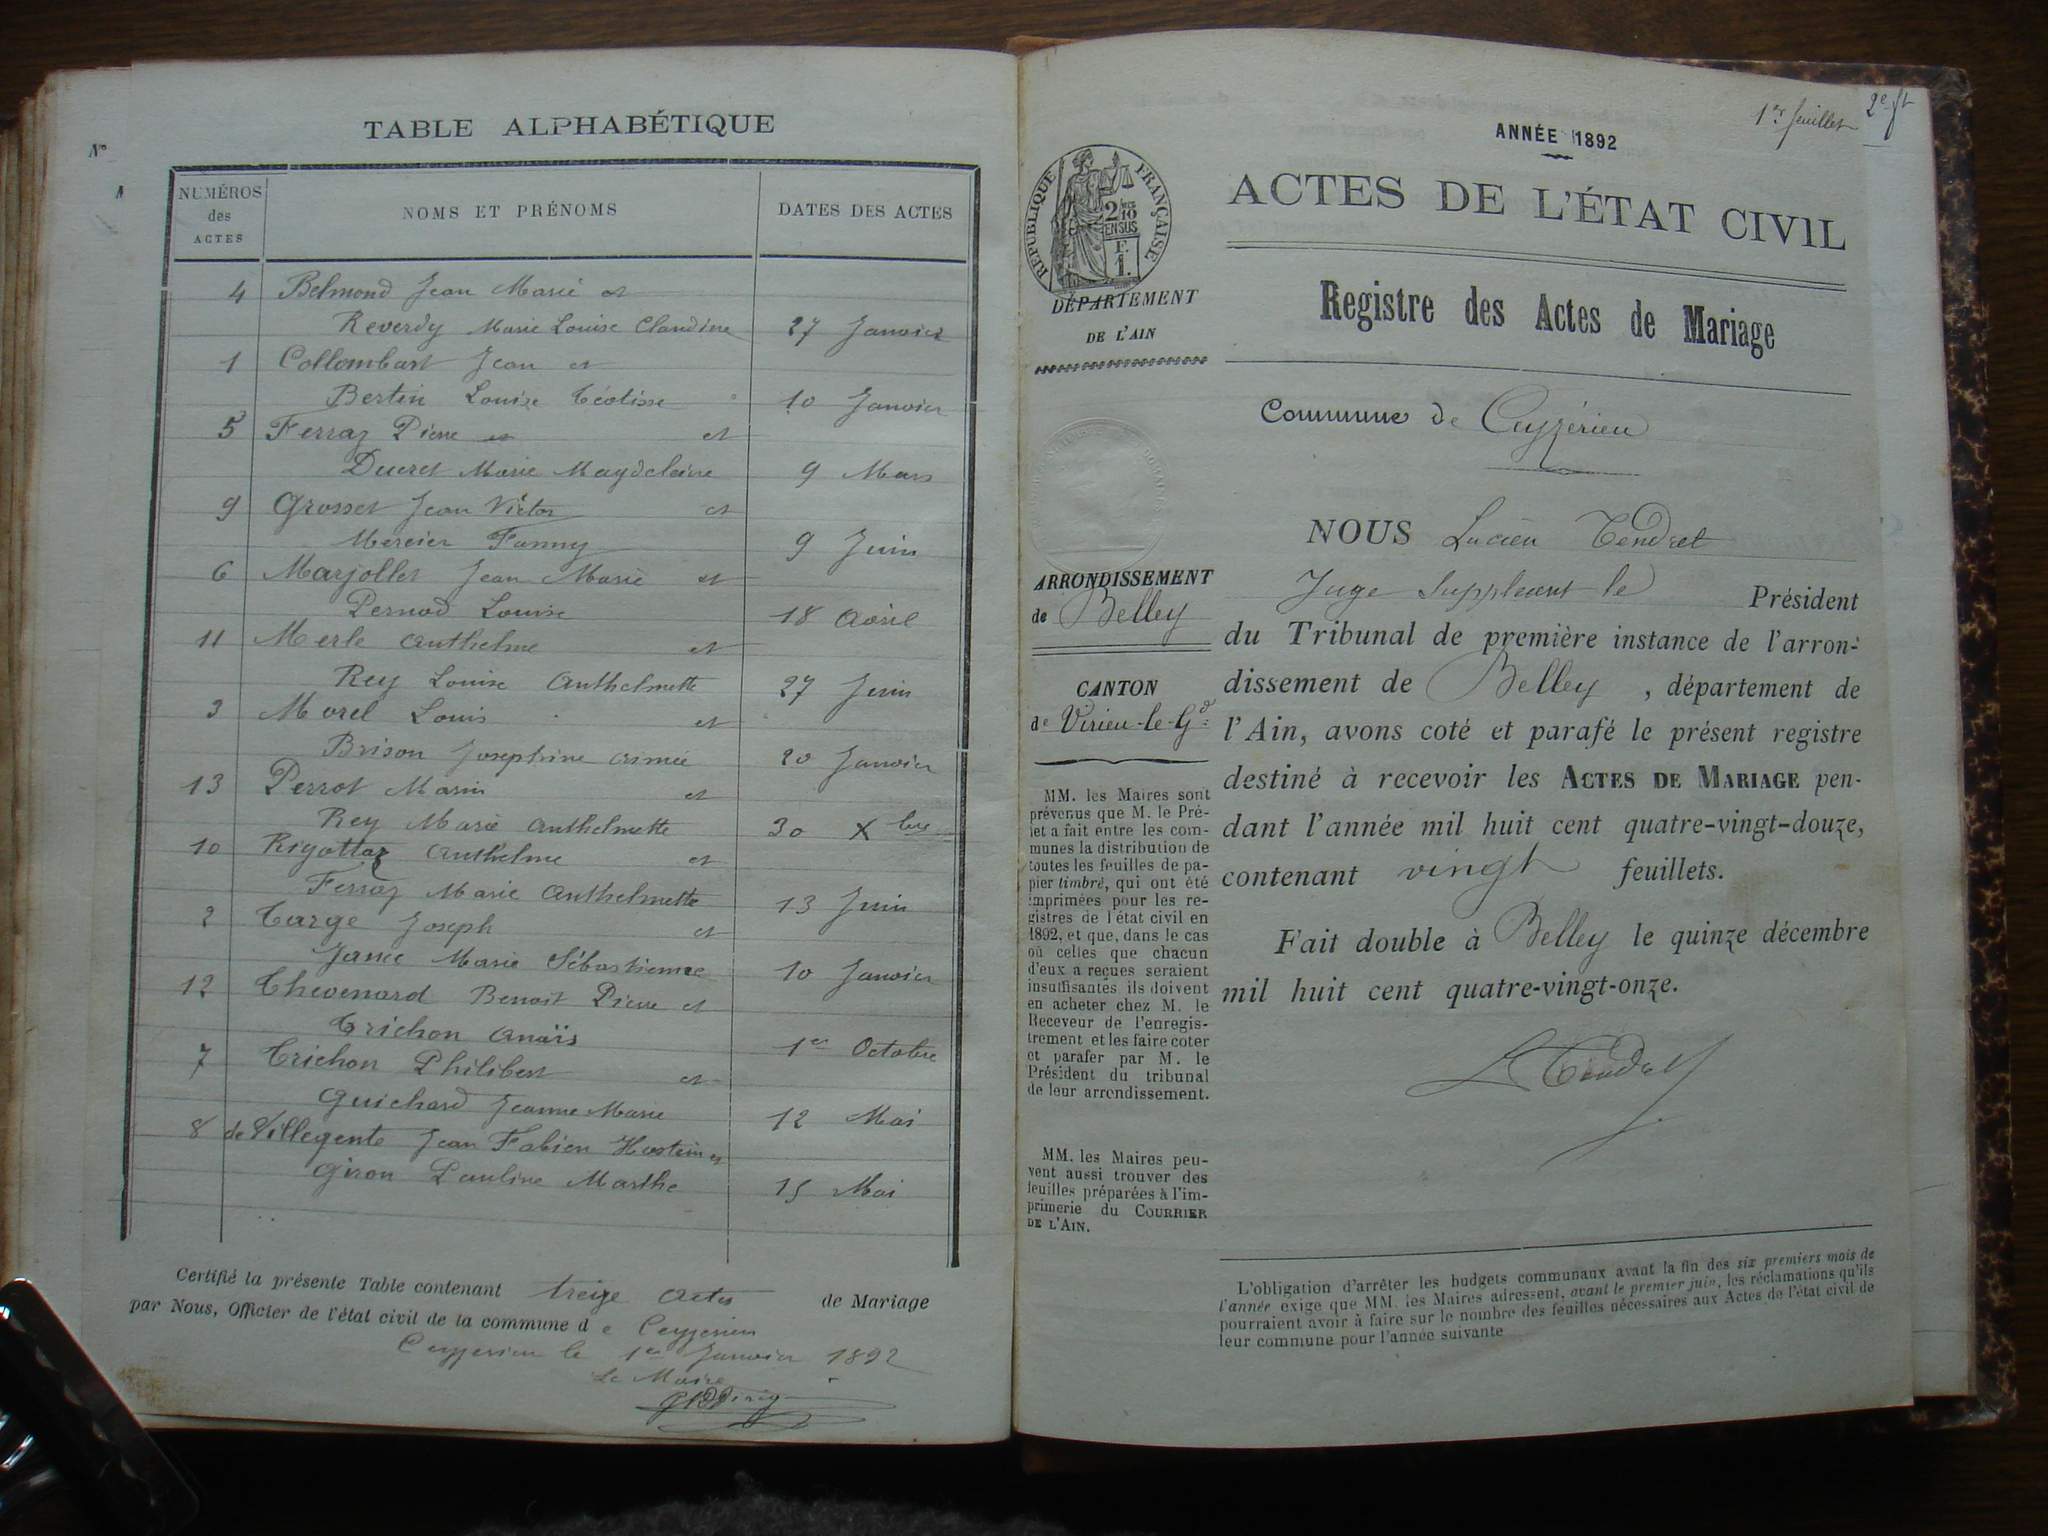 N°
TABLE ALPHABÉTIQUE
NUMÉROS des ACTES
NOMS ET PRÉNOMS
DATES DES ACTES
4 Belmond Jean Marie et
Reverdy Marie Louise Claudine 27 Janvier
1 Collombart Jean et
Bertin Louise Téotisse 10 Janvier
5 Ferraz Pierre et et
Ducret Marie Magdeleine 9 Mars
9 Grosset Jean Victor et
Mercier Fanny 9 Juin
6 Marjollet Jean Marie et
Pernod Louise 18 Avril
11 Merle Anthelme et
Rey Louise Anthelmette 27 Juin
3 Morel Louis et
Brison Josephine Aimée 20 Janvier
13 Perrot Marin et
Rey Marie Anthelmette 30 Xbre
10 Rigottaz Anthelme et
Ferraz Marie Anthelmette 13 Juin
2 Targe Joseph et
Janee Marie Sébastienne 10 Janvier
12 Thevenard Benoit Pierre et
Trichon Anaïs 1er Octobre
7 Trichon Philibert et
Guichard Jeanne Marie 12 Mai
8 de Villegente Jean Fabien Hostein et
Giron Pauline Marthe 15 Mai
Certifié la présente Table contenant treize actes de Mariage
par Nous, Officier de l'état civil de la commune d e Ceyzerieu
Ceyzerieu le 1er Janvier 1892
Le Maire
1er feuillet
2e ft
ANNÉE 1892
ACTES DE L'ÉTAT CIVIL
Registre des Actes de Mariage
RÉPUBLIQUE FRANÇAISE
2/10
EN SUS
F.
1.
DÉPARTEMENT
DE L'AIN
Commune de Ceyzérieu
NOUS Lucien Tendret
Juge Suppléant le Président
du Tribunal de première instance de l'arron-
dissement de Belley, département de
l'Ain, avons coté et parafé le présent registre
destiné à recevoir les ACTES DE MARIAGE pen-
dant l'année mil huit cent quatre-vingt-douze,
contenant vingt feuillets.
Fait double à Belley le quinze décembre
mil huit cent quatre-vingt-onze.
L Tendret
ARRONDISSEMENT
de Belley
CANTON
de Virieu-le-Gd
MM. les Maires sont
prévenus que M. le Pré-
fet a fait entre les com-
munes la distribution de
toutes les feuilles de pa-
pier timbré, qui ont été
imprimées pour les re-
gistres de l'état civil en
1892, et que, dans le cas
où celles que chacun
d'eux a reçues seraient
insuffisantes ils doivent
en acheter chez M. le
Receveur de l'enregis-
trement et les faire coter
et parafer par M. le
Président du tribunal
de leur arrondissement.
MM. les Maires peu-
vent aussi trouver des
feuilles préparées à l'im-
primerie du COURRIER
DE L'AIN.
L'obligation d'arrêter les budgets communaux avant la fin des six premiers mois de
l'année exige que MM. les Maires adressent, avant le premier juin, les réclamations qu'ils
pourraient avoir à faire sur le nombre des feuilles nécessaires aux Actes de l'état civil de
leur commune pour l'année suivante